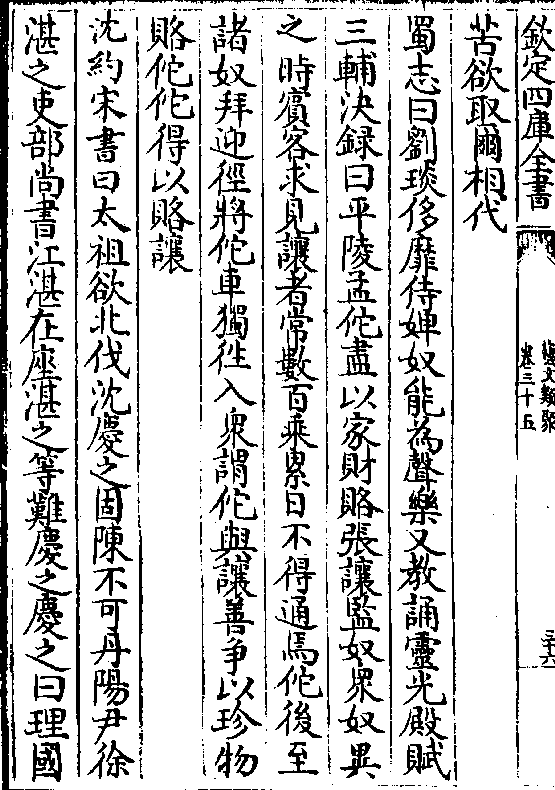 欽定四庫全書
藝文類聚
卷三十五
三十六
苦欲取爾相代
蜀志曰劉琰侈靡侍婢奴能為聲樂又教誦靈光殿賦
三輔決録曰平陵孟佗盡以家財賂張讓監奴衆奴異
之時賓客求見讓者常數百乘累日不得通焉佗後至
諸奴拜迎徑將佗車獨徃入衆謂佗與讓善争以珍物
賂佗佗得以賂讓
沈約宋書曰太祖欲北伐沈慶之固陳不可丹陽尹徐
湛之吏部尚書江湛在座湛之等難慶之慶之曰理國